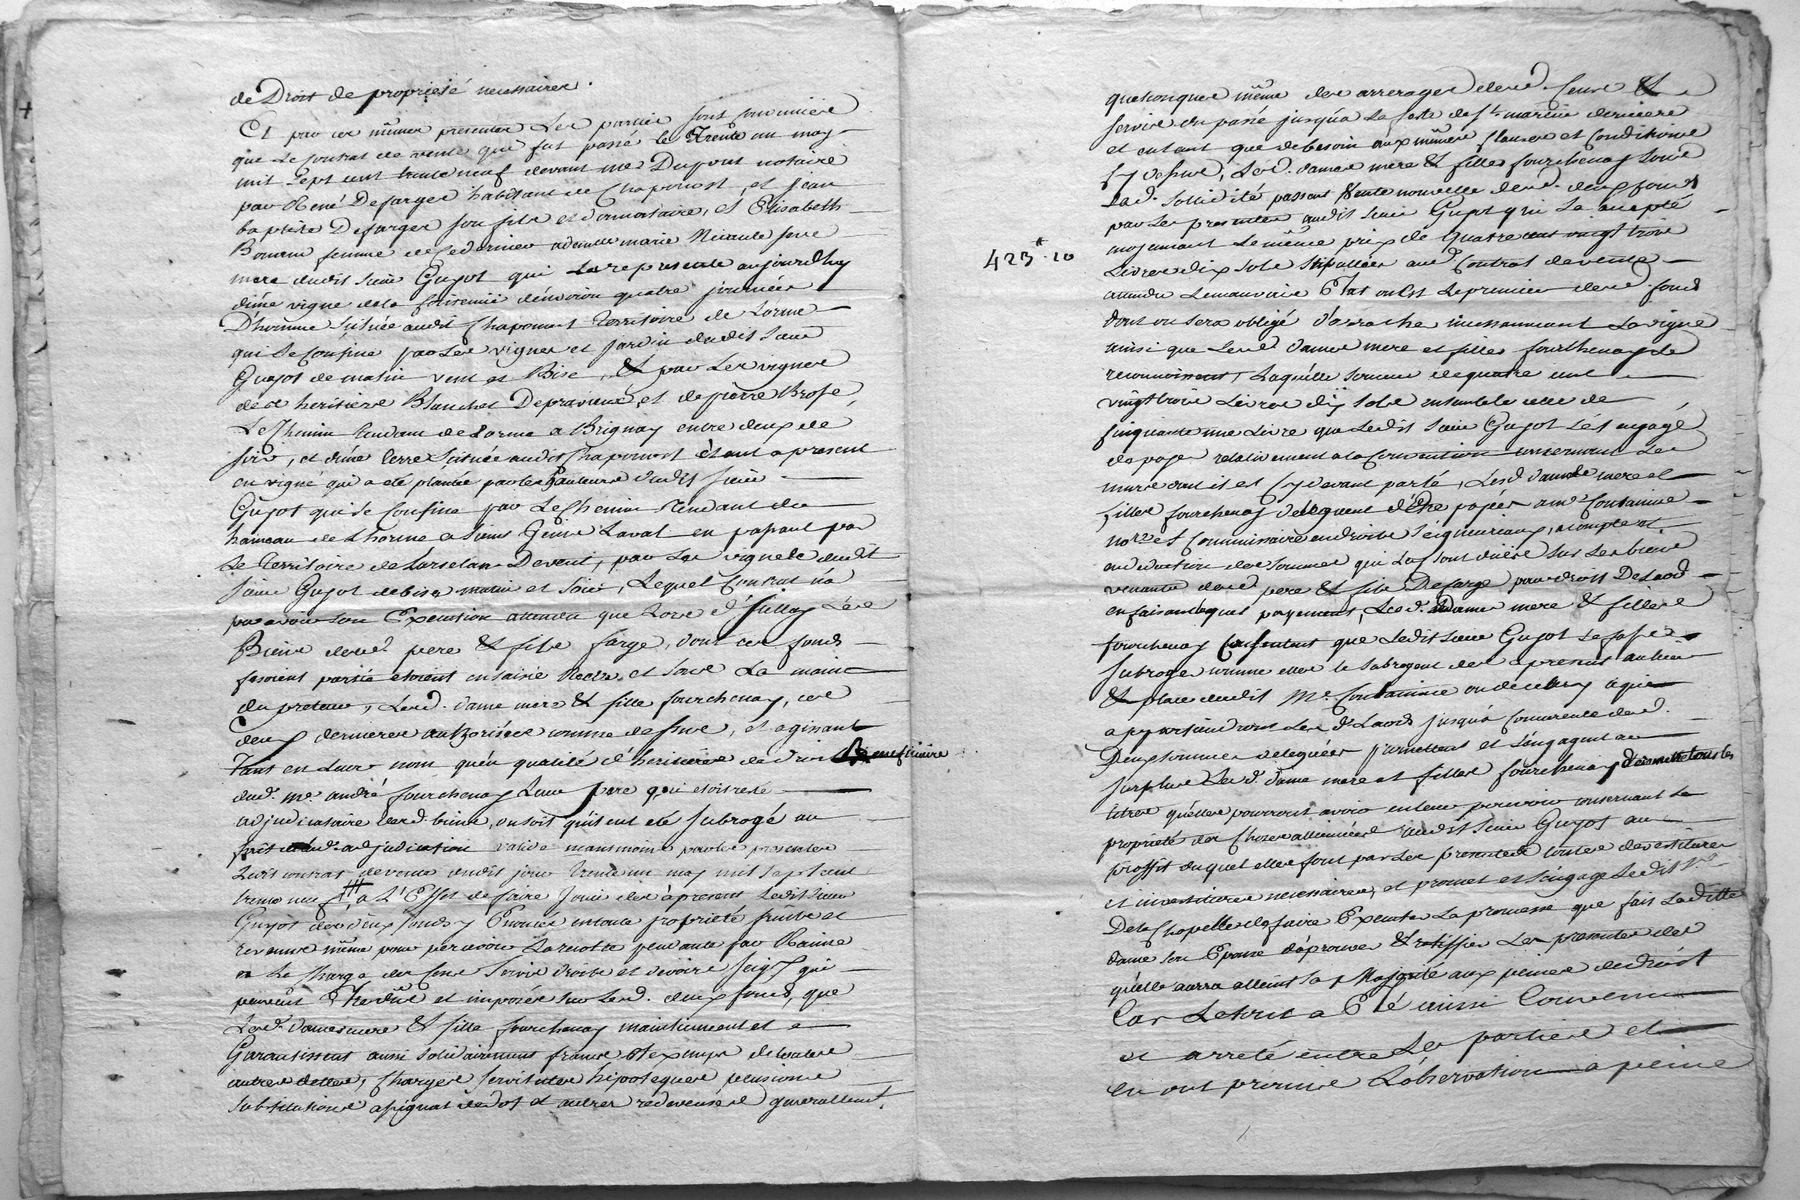 de Droit de propriété necessaires.
Et par ces mêmes presentes Les parties sont convenues
que Le contrat de vente qui fut passé le Trente un may
mil sept cent trente neuf devant me Dupont notaire
par René Defarges habitant de Chaponost, et Jean
baptiste Defarges son fils et donnataire, et Elisabeth
femme de ce dernier a demlle marie
mere dudit sieur Guyot qui la represente aujourdhuy
d'une vigne de la contenue d'environ quatre journées
D'homme située audit Chaponost Territoire de Lorme
qui se confine par Les vignes et jardin dudit sieur
Guyot de matin vent et Bise, & par Les vignes
des heritiers Blanchet Depravieux, et de pierre Brosse,
Le Chemin tendant de Lorme a Brignay entre deux de
soir, et d'une terre située audit Chaponost étant a present
en vigne qui a été plantée par les hauteurs dudit sieur
Guyot qui se confine par Le Chemin Tendant du
hameau de Lhorme a Laval en passant par
Le Territoire de Devent, par La vigne dudit
sieur Guyot de bise matin et soir, Lequel Contrat n'a
pu avoir son Execution attendu que Lors d'icelluy Les
Biens desd. pere & fils farge, dont ces fonds
fesoient partie etoient en saisie Réelle et sous La main
du preteur, Lesd. dame mere & fille fourchenay, ces
deux dernieres authorisées comme dessus, et agissant
Tant en Leur nom qu'en qualité d'heritieres de droit Beneficiaire
dud. me. andré fourchenay Leur pere qui etoit resté
adjudicataire desd. biens, ou soit qui eut été subrogé au
adjudication valide par les presentes
Ledit contrat de vente dudit jour trente un may mil sept cent
trente neuf a L'Effet de faire jouir des a present Ledit sieur
Guyot des deux fonds y Enoncés en toute propriété fruits et
revenus même pour percevoir La recolte pendante par Racine
a La Charge des Cens Servis droits et devoirs seigx qui
peuvent Etre dus et imposés sur Lesd. deux fonds, que
Lesd. dames mere & fille fourchenay maintiennent et
Garantissent aussi solidairement francs Et exempts de toutes
autres dettes, Charges servitudes hipoteques pensions
substitutions assignat de dot et autres redevances generallement
quelconques même des arrerages desd. Cens &
servis du passé jusqu'a La fete de st. martin derniere
et en tant que de besoin aux mêmes Clauses et Conditions
Cy dessus, Lesd. dames mere & filles fourchenay sous
Lad. sollidité passent Vente nouvelle desd. deux fonds
par Les presentes audit sieur Guyot qui La accepté
moyennant Le même prix de quatre cent vingt trois
423 # 10
Livres dix sols stipullées aud. Contrat de vente
attendu Le mauvais Etat ou est Le premier desd. fonds
dont on sera obligé d'arracher incessamment La vigne
ainsi que Lesd. dames mere et filles fourchenay Le
reconnoissent, Laquelle somme de quatre cent
vingt trois Livres dix sols ensemble celle de
Cinquante une Livre que Ledit sieur Guyot s'est engagé
de payer relativement a la Convention concernant Les
murs dont il est Cy devant parlé, Lesd. dames mere et
filles fourchenay deleguent d'Etre payées a me. Condamine
nore. et Commissaire en droits seigneuriaux, a compte et
en deduction des sommes qui Luy sont dües sur Les biens
venants desd. pere & fils Defarge pour droits De Laods
en faisant lequel payement, Lesd. dames mere & filles
fourchenay Consentent que Ledit sieur Guyot se fasse
subroger comme elles le subrogent des a present au lieu
& place dudit Me. Condamine ou de celuy a qui
appartiendront Lesd. Laods jusqu'a Concurrence desd.
Deux sommes deleguées promettent et s'engagent au
surplus Lesd. dame mere et filles fourchenay de remettre tous les
titres qu'elles pourront avoir en leur pouvoir concernant La
propriété des Choses allienées audit sieur Guyot au
proffit duquel elles font par Les presentes toutes devestitures
et investitures necessaires, et promet et s'engage Ledit Sr.
Dela Chapelle de faire Executer La promesse que fait Laditte
dame son Epouse d'aprouver & ratiffier Les presentes des
qu'elle aura atteint sa Majorité aux peines de droit
Car Le tout a Eté ainsi Convenu
et arreté entre Les parties et
en ont promis L'observation a peine